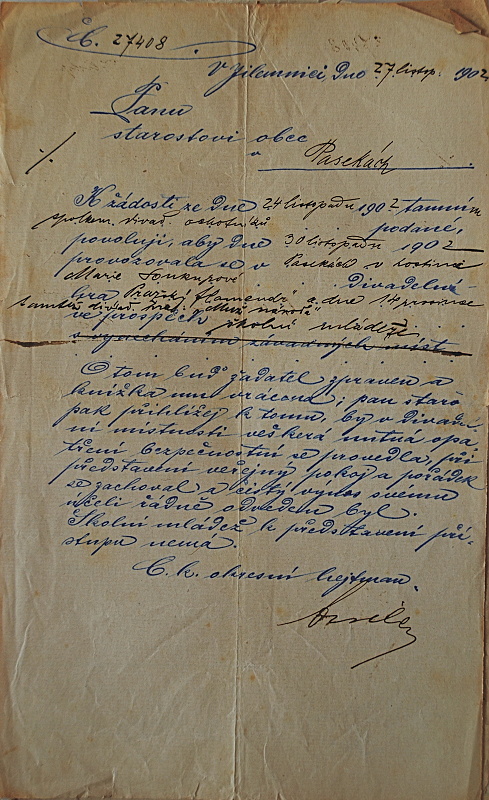 Čís. 27408
V Jilemnici, Dne 27. listop. 1902
Panu
starostovi obce
v Pasekách
K žádosti ze dne 24 listopadu 1902 tamním
spolkem divad. ochotníků podané,
povoluji, aby dne 30 listopadu 1902
provozovala se v Pasekách v hostinci
Marie divadelní
hra a dne 14 prosince
ve prospěch školní mládeže
s vynecháním závadných míst.
O tom buď žadatel zpraven a
knížka mu vrácena; pan staro
pak přihlížej k tomu, by v divadel
ní místnosti veškerá nutná opa
tření bezpečnostní se provedla, při
představení veřejný pokoj a pořádek
se zachoval a čistý výnos svému
účeli řádně odveden byl.
Školní mládež k představení pří-
stupu nemá.
C. k. okresní hejtman